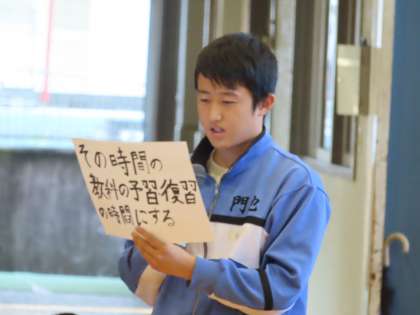 その時間の
教科の予習復習
の時間にする